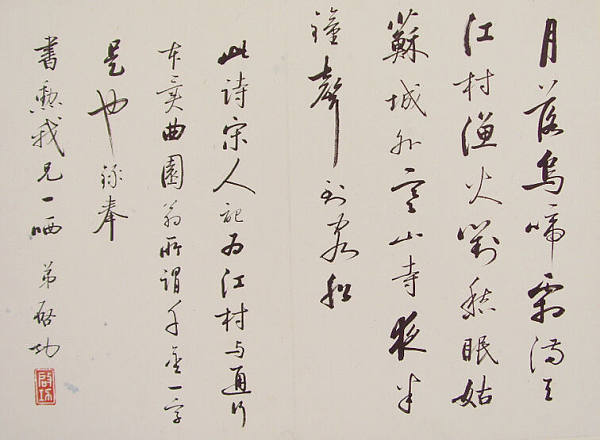 月落烏啼霜满天
江村渔火對愁眠姑
蘇城外寒山寺夜半
鐘聲到客船
此诗宋人記为江村与通行
本異曲園翁所謂千金一字
是也録奉
書勲我兄一哂 弟啓功
啟功